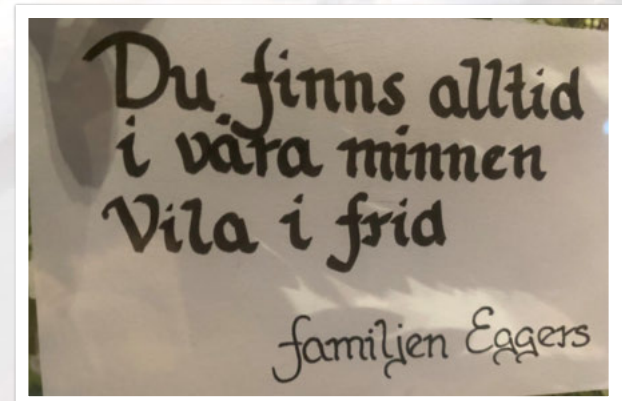 Du finns alltid
i våra minnen
Vila i frid
familjen Eggers